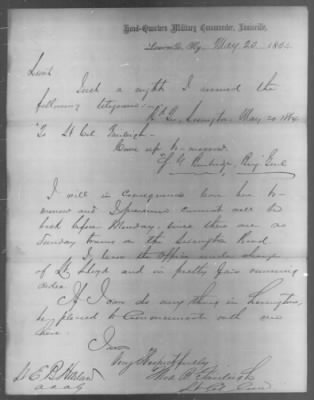 Head-Quarters Military Commander, Louisville,
Louisville, Ky. May 20, 1864
Lieut
Such a night I received the
following telegram:—
Hd Qrs, Lexington, May 20, 1864
To Lt Col Fairleigh—
Come up to-morrow
Brig Genl
I will in consequence leave here to-
morrow and I presume cannot well be
back before Monday, since there are no
Sunday trains on the Lexington Road.
I leave the office under charge
of Lt. Lloyd and in pretty fair running
order.
If I can do any thing in Lexington,
be pleased to communicate with me
there.
I am
Very Respectfully
Thos. B. Fairleigh
Lt Col Comd
Lt E. B. Harlan
A.A.A.G